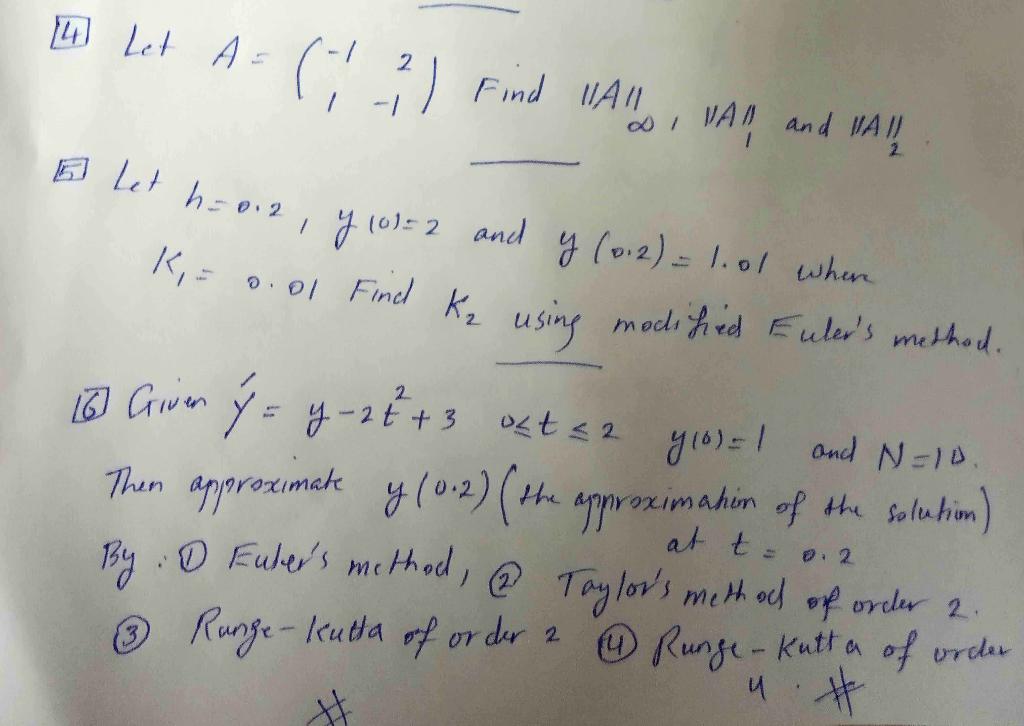 [4] Let A = ( -1 2
1 -1 ) Find ||A||∞, ||A||1 and ||A||2.
[5] Let h=0.2, y(0)=2 and y(0.2)=1.01 where
K1 = 0.01 Find K2 using modified Euler's method.
[6] Given ý = y-2t²+3 0≤t≤2 y(0)=1 and N=10.
Then approximate y(0.2) (the approximation of the solution)
at t=0.2
By: ① Euler's method, ② Taylor's method of order 2.
③ Runge-kutta of order 2 ④ Runge-Kutta of order
4. #
#